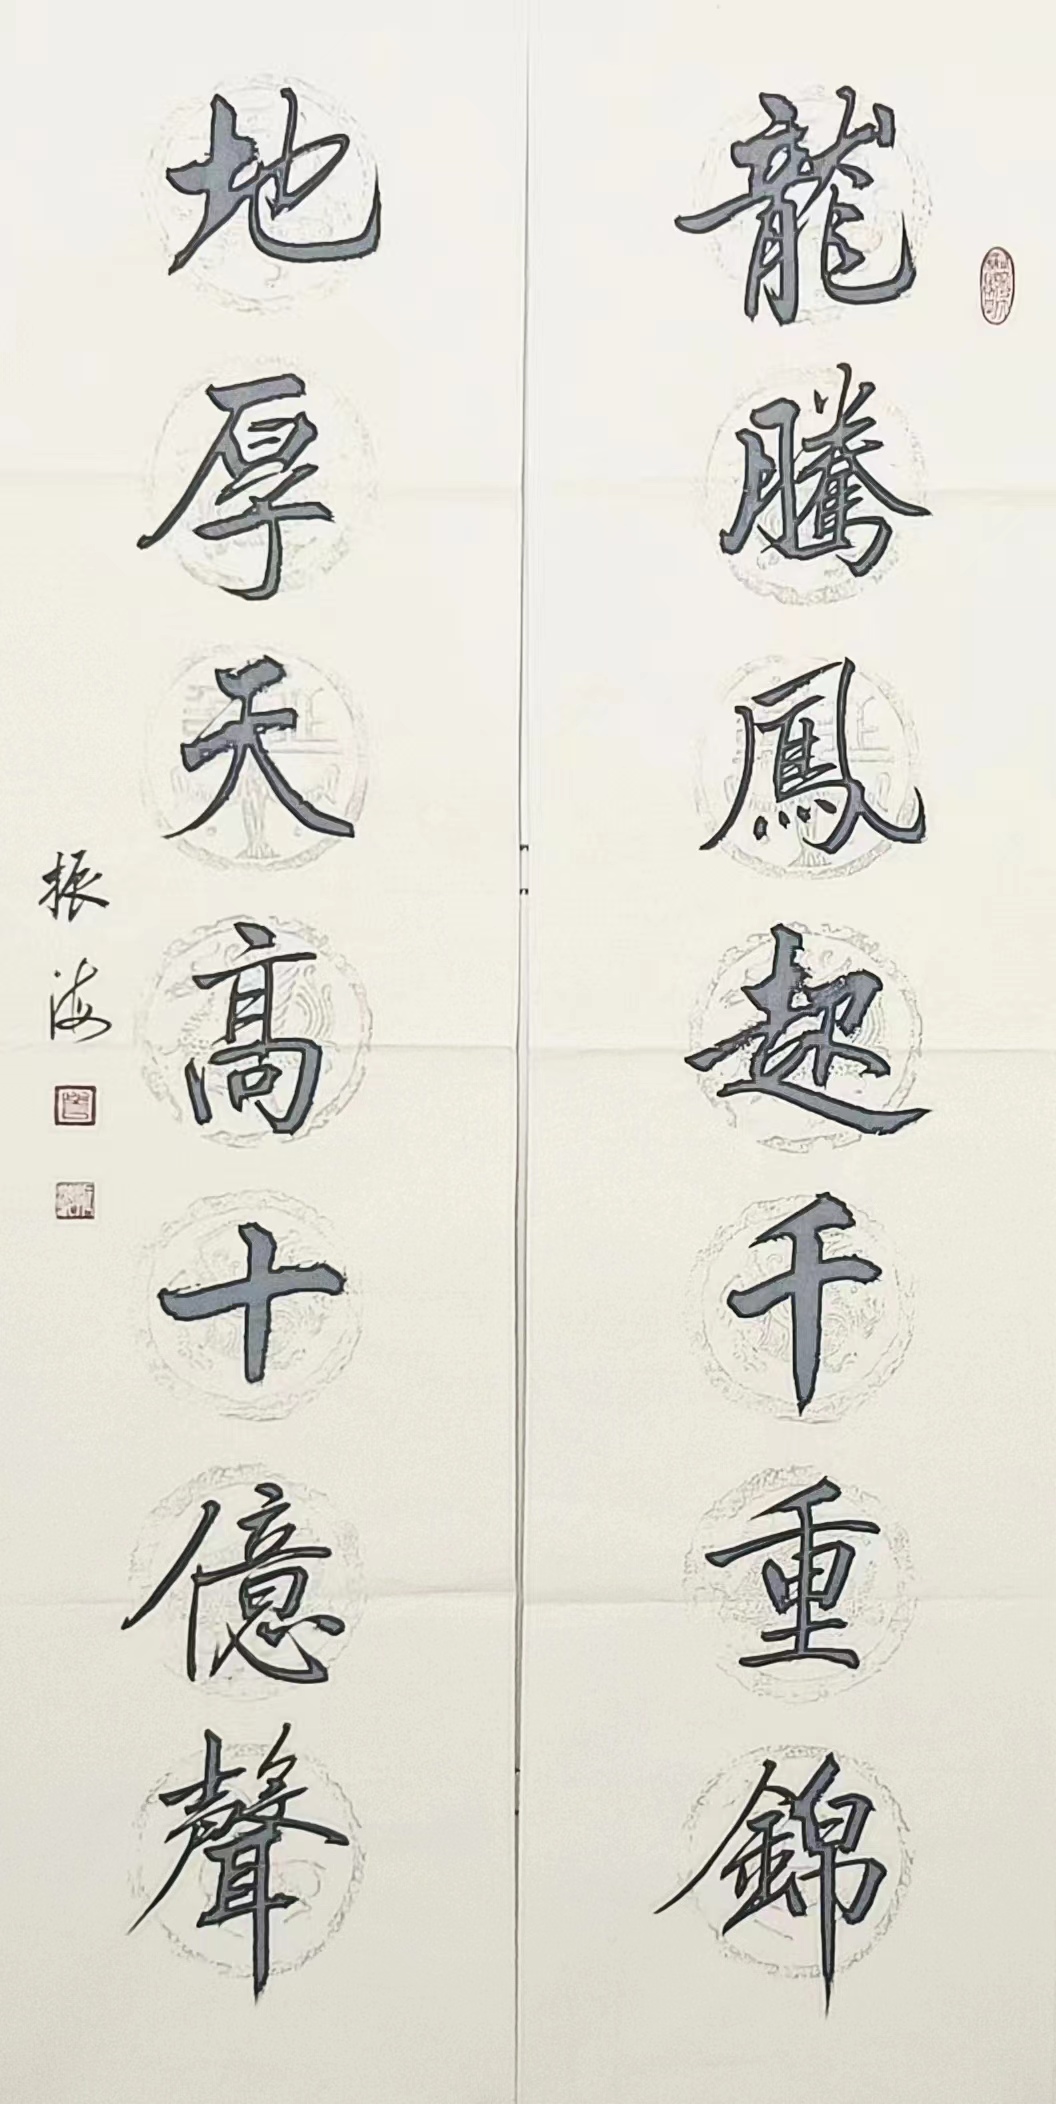 龍騰鳳起千重錦
地厚天高十億聲
振海